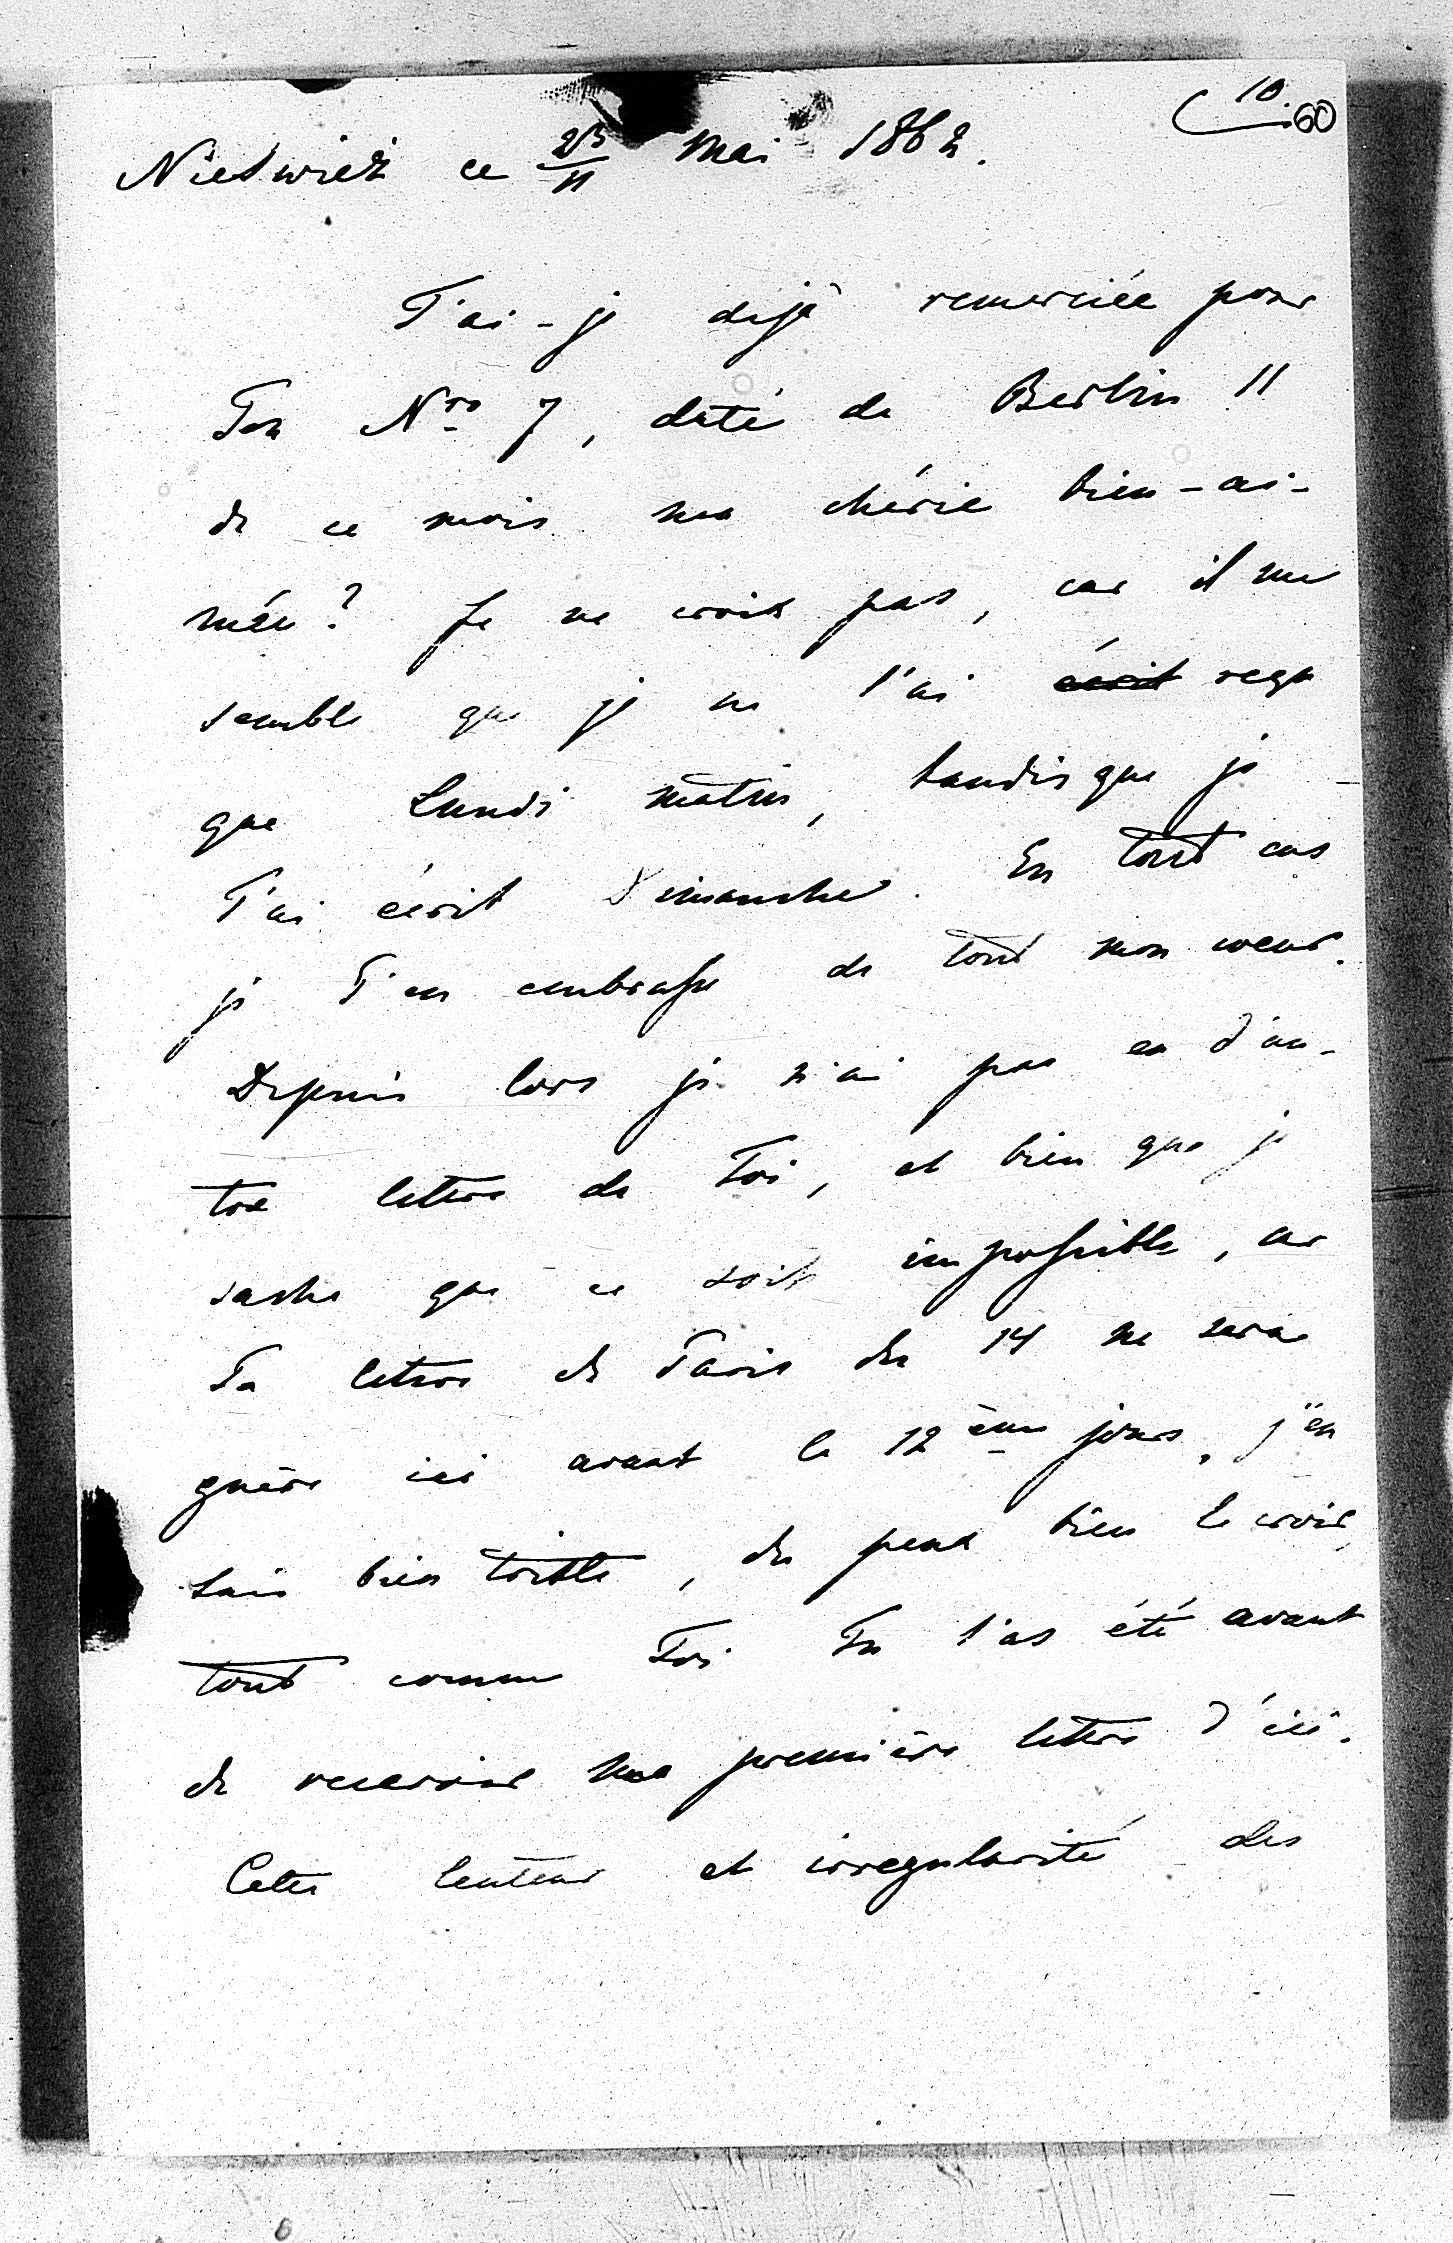 10.
60
Nieświeź ce 23/11 Mai 1862.
T'ai-je dejà remerciée pour
Ton Nro 7, daté de Berlin 11
de ce mois ma chérie bien-ai-
mée? Je ne crois pas, car il me
semble que je ne l'ai écrit reçu
que Lundi matin, tandis que je
T'ai écrit Dimanche. En tout cas
je T'en embrasse de tout mon coeur.
Depuis lors je n'ai pas eu d'au-
tre lettre de Toi, et bien que je
sache que ce soit impossible, car
Ta lettre de Paris du 14 ne sera
guère ici avant le 12ème jour, j'en
suis bien triste, Tu peux bien le croire,
tout comme Toi Tu l'as été avant
de recevoir ma première lettre d'ici.
Cette lenteur et irregularité des